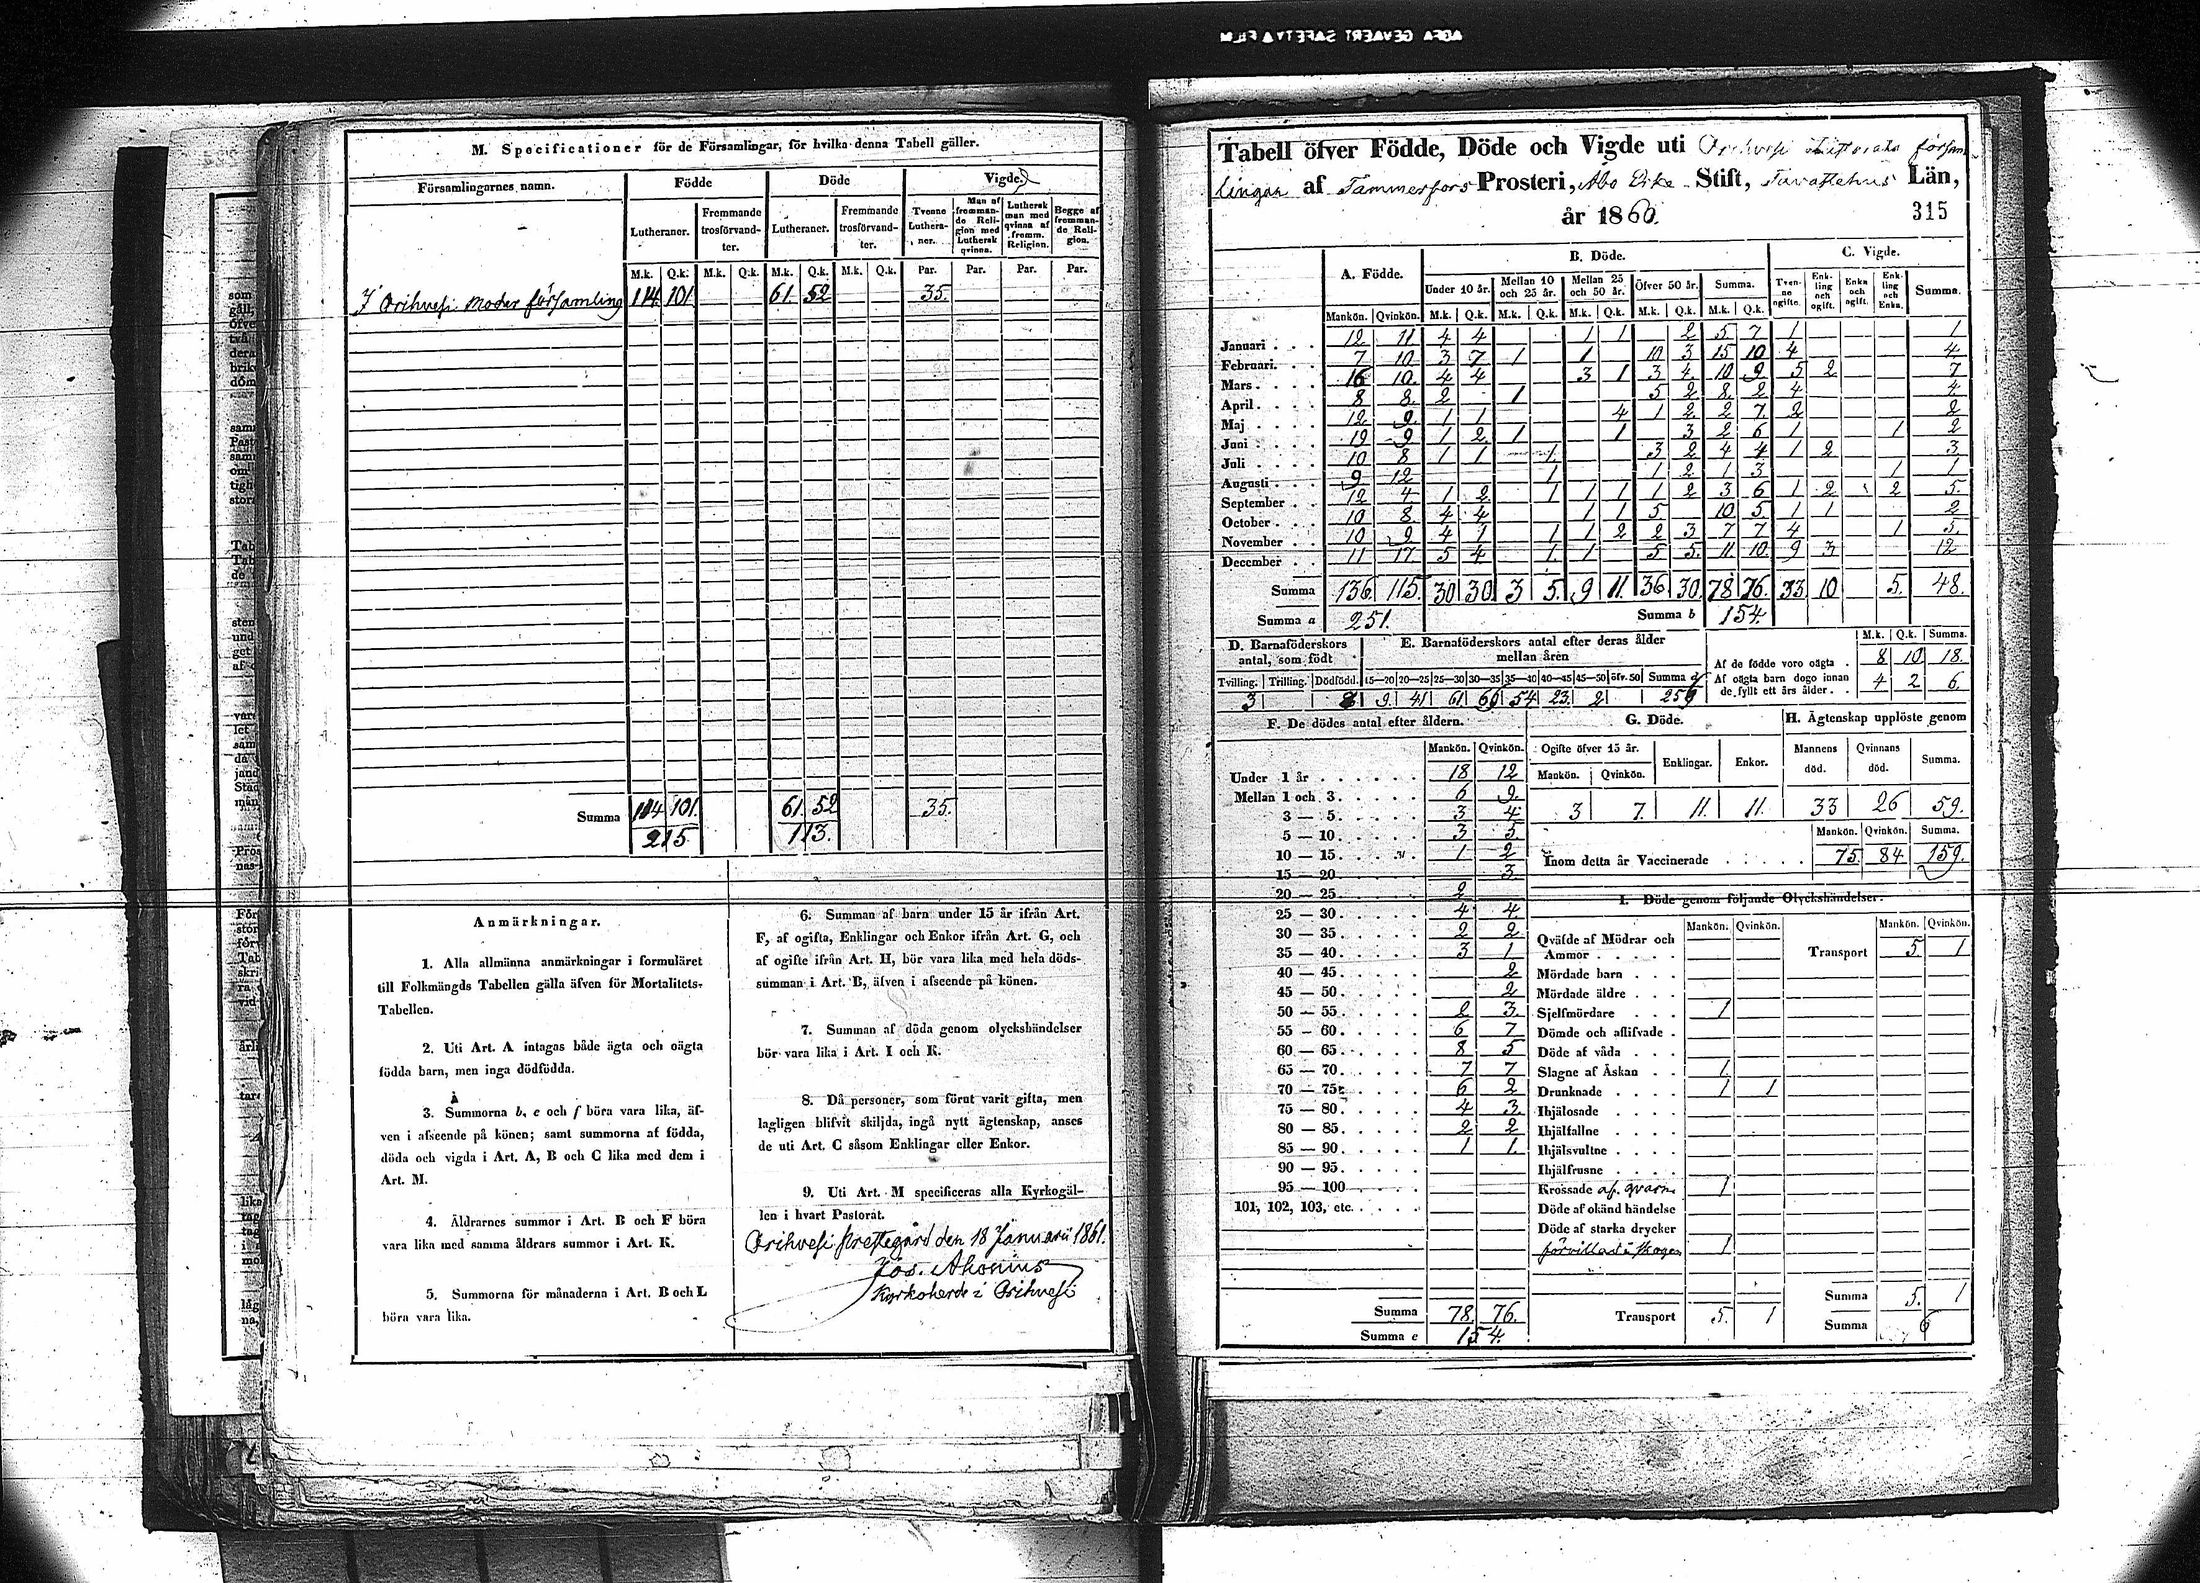 AGFA GEVAERT SAFETY FILM
M. Specificationer för de Församlingar, för hvilka denna Tabell gäller.
Församlingarnes namn. Födde Döde Vigde
Lutheraner. Fremmande trosförvandter. Lutheraner. Fremmande trosförvandter. Tvenne Lutheraner. Man af fremmande Religion med Luthersk qvinna. Luthersk man med qvinna af fremm. Religion. Begge af fremmande Religion.
M.k. Q.k. M.k. Q.k. M.k. Q.k. M.k. Q.k. Par. Par. Par. Par.
I Orihvesi moder församling 114 101 61 52 35.
Summa 114 101. 61. 52 35.
215 113.
Anmärkningar.
1. Alla allmänna anmärkningar i formuläret
till Folkmängds Tabellen gälla äfven för Mortalitets-
Tabellen.
2. Uti Art. A intagas både ägta och oägta
födda barn, men inga dödfödda.
3. Summorna b, e och f böra vara lika, äf-
ven i afseende på könen; samt summorna af födda,
döda och vigda i Art. A, B och C lika med dem i
Art. M.
4. Åldrarnes summor i Art. B och F böra
vara lika med samma åldrars summor i Art. K.
5. Summorna för månaderna i Art. B och L
böra vara lika.
6. Summan af barn under 15 år ifrån Art.
F, af ogifta, Enklingar och Enkor ifrån Art. G, och
af ogifte ifrån Art. H, bör vara lika med hela döds-
summan i Art. B, äfven i afseende på könen.
7. Summan af döda genom olyckshändelser
bör vara lika i Art. I och K.
8. Då personer, som förut varit gifta, men
lagligen blifvit skiljda, ingå nytt ägtenskap, anses
de uti Art. C såsom Enklingar eller Enkor.
9. Uti Art. M specificeras alla Kyrkogäl-
len i hvart Pastorat.
Orihvesi Prestegård den 18 Januarii 1861.
Jos. Ahonius
Kyrkoherde i Orihvesi
Tabell öfver Födde, Döde och Vigde uti Orihvesi Pastorats försam-
lingar af Tammerfors Prosteri, Åbo Erke Stift, Tavastehus Län,
år 1860.
315
A. Födde. B. Döde. C. Vigde.
Under 10 år. Mellan 10 och 25 år. Mellan 25 och 50 år. Öfver 50 år. Summa. Tvenne ogifte. Enkling och ogift. Enka och ogift. Enkling och Enka. Summa.
Mankön. Qvinkön. M.k. Q.k. M.k. Q.k. M.k. Q.k. M.k. Q.k. M.k. Q.k.
Januari 12 11 4 4 1 1 2 5 7 1 1
Februari 7 10 3 7 1 1 10 3 15 10 4 4
Mars 16 10 4 4 3 1 3 4 10 9 5 2 7
April 8 8 2 1 5 2 8 2 4 4
Maj 12 9 1 1 4 1 2 2 7 2 2
Juni 19 9 1 2 1 1 3 2 6 1 1 2
Juli 10 8 1 1 1 3 2 4 4 1 2 3
Augusti 9 12 1 1 2 1 3 1 1
September 12 4 1 2 1 1 1 1 2 3 6 1 2 2 5.
October 10 8 4 4 1 1 5 10 5 1 1 2
November 10 9 4 1 1 1 2 2 3 7 7 4 1 5.
December 11 17 5 4 1 1 5 5 11 10 9 3 12
Summa 136. 115. 30 30 3 5. 9 11. 36 30 78 76. 33 10 5. 48.
Summa a 251. Summa b 154.
D. Barnaföderskors antal, som födt
E. Barnaföderskors antal efter deras ålder mellan åren
M.k. Q.k. Summa.
Af de födde voro oägta 8 10 18.
Af oägta barn dogo innan de fyllt ett års ålder 4 2 6.
Tvilling. Trilling. Dödfödd. 15—20 20—25 25—30 30—35 35—40 40—45 45—50 öfv. 50 Summa
3 9 41 61 69 54 23 2 259
F. De dödes antal efter åldern.
Mankön. Qvinkön.
Under 1 år 18 12
Mellan 1 och 3. 6 9.
3 — 5. 3 4
5 — 10. 3 5
10 — 15. 1 2
15 — 20 3
20 — 25. 2
25 — 30. 4 4
30 — 35. 2 2
35 — 40. 3 1
40 — 45. 2
45 — 50. 2
50 — 55. 2 3
55 — 60. 6 7
60 — 65. 8 5
65 — 70. 7 7
70 — 75. 6 2
75 — 80. 4 3
80 — 85. 2 2
85 — 90. 1 1.
90 — 95.
95 — 100
101, 102, 103, etc.
Summa 78. 76.
Summa e 154.
G. Döde.
Ogifte öfver 15 år. Enklingar. Enkor.
Mankön. Qvinkön.
3 7. 11. 11.
H. Ägtenskap upplöste genom
Mannens död. Qvinnans död. Summa.
33 26 59.
Mankön. Qvinkön. Summa.
Inom detta år Vaccinerade 75. 84. 159.
I. Döde genom följande Olyckshändelser.
Mankön. Qvinkön. Mankön. Qvinkön.
Qväfde af Mödrar och Ammor Transport 5. 1
Mördade barn
Mördade äldre
Sjelfmördare 1
Dömde och aflifvade
Döde af våda
Slagne af Åskan 1
Drunknade 1 1
Ihjälosade
Ihjälfallne
Ihjälsvultne
Ihjälfrusne
Krossade af qvarn 1
Döde af okänd händelse
Döde af starka drycker
förvillad i skogen 1
Summa 5. 1
Transport 5. 1 Summa 6